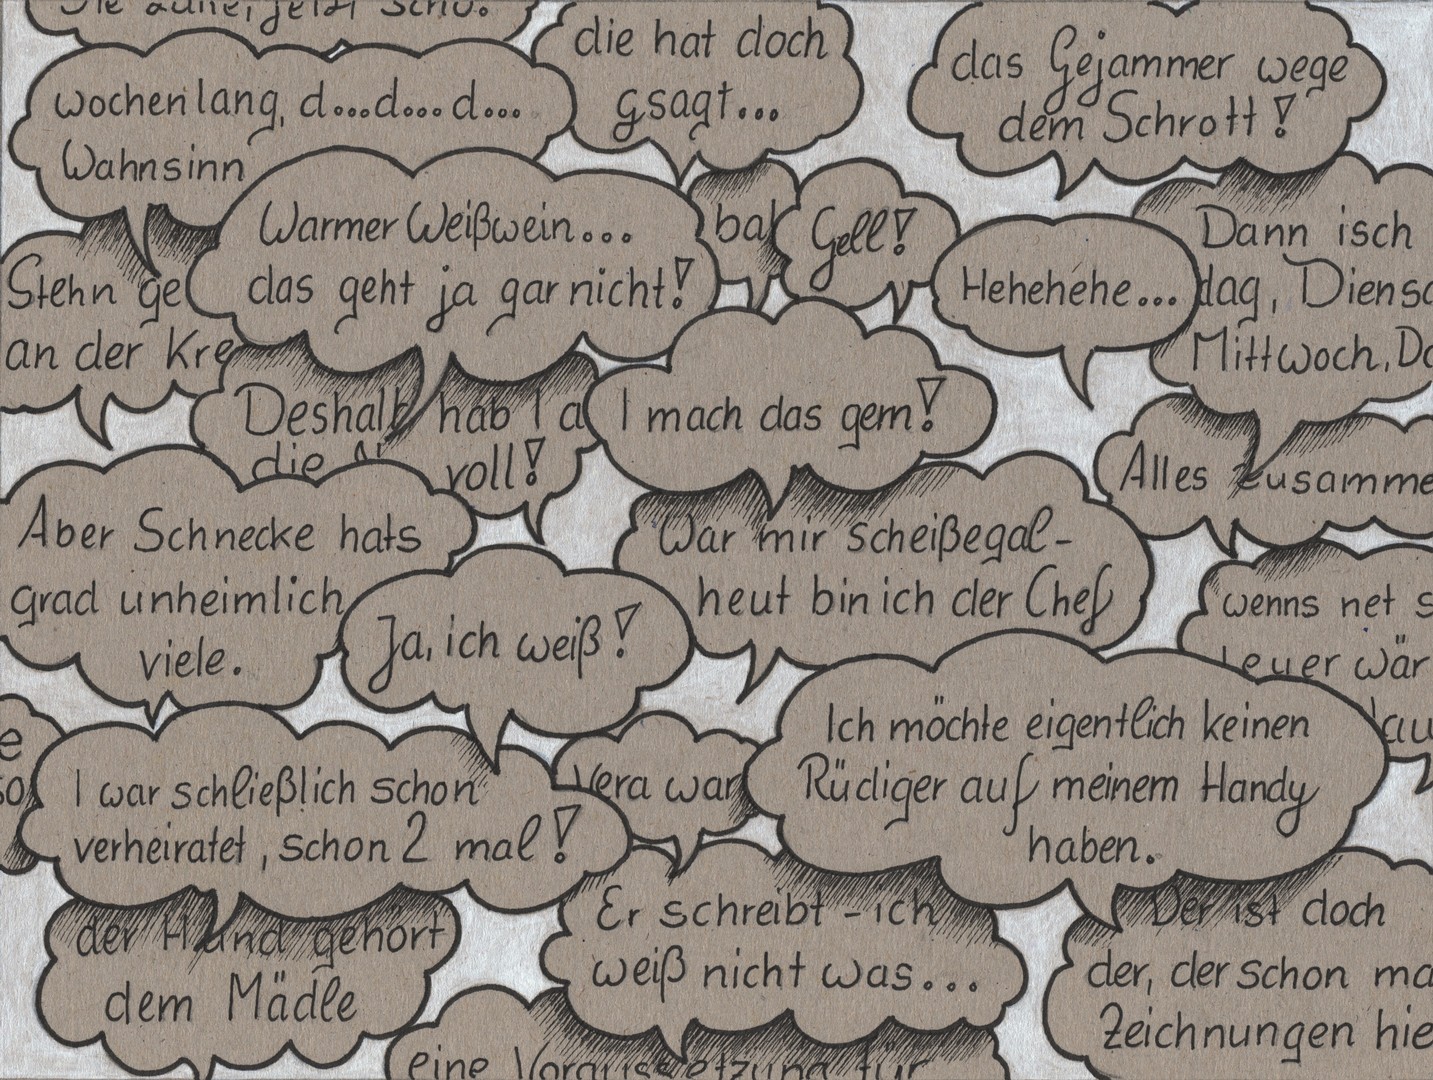 die hat doch
gsagt...
das Gejammer wege
dem Schrott!
wochenlang, d...d...d...
Wahnsinn
Warmer Weißwein...
das geht ja gar nicht!
Gell!
Hehehehe...
Dann isch
dag,
Mittwoch,
Stehn
an der
Deshalb hab I
die
voll!
I mach das gern!
Alles
War mir scheißegal-
heut bin ich der Chef
Aber Schnecke hats
grad unheimlich
viele.
Ja, ich weiß!
wenns net
Ich möchte eigentlich keinen
Rüdiger auf meinem Handy
haben.
Vera war
I war schließlich schon
verheiratet, schon 2 mal!
der Hund gehört
dem Mädle
Er schreibt - ich
weiß nicht was...
Der ist doch
der, der schon
Zeichnungen
eine Voraussetzung für